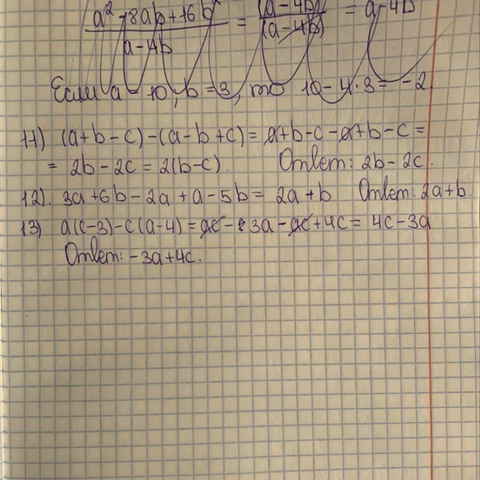 a² - 8ab + 16b² / a - 4b = (a - 4b)² / (a - 4b) = a - 4b
Если a = 10, b = 3, то 10 - 4·3 = -2
11) (a+b-c)-(a-b+c) = a+b-c-a+b-c =
= 2b - 2c = 2(b-c). Ответ: 2b - 2c.
12). 3a+6b-2a+a-5b = 2a+b Ответ: 2a+b.
13) a(c-3)-c(a-4) = ac - 3a - ac + 4c = 4c - 3a
Ответ: -3a+4c.